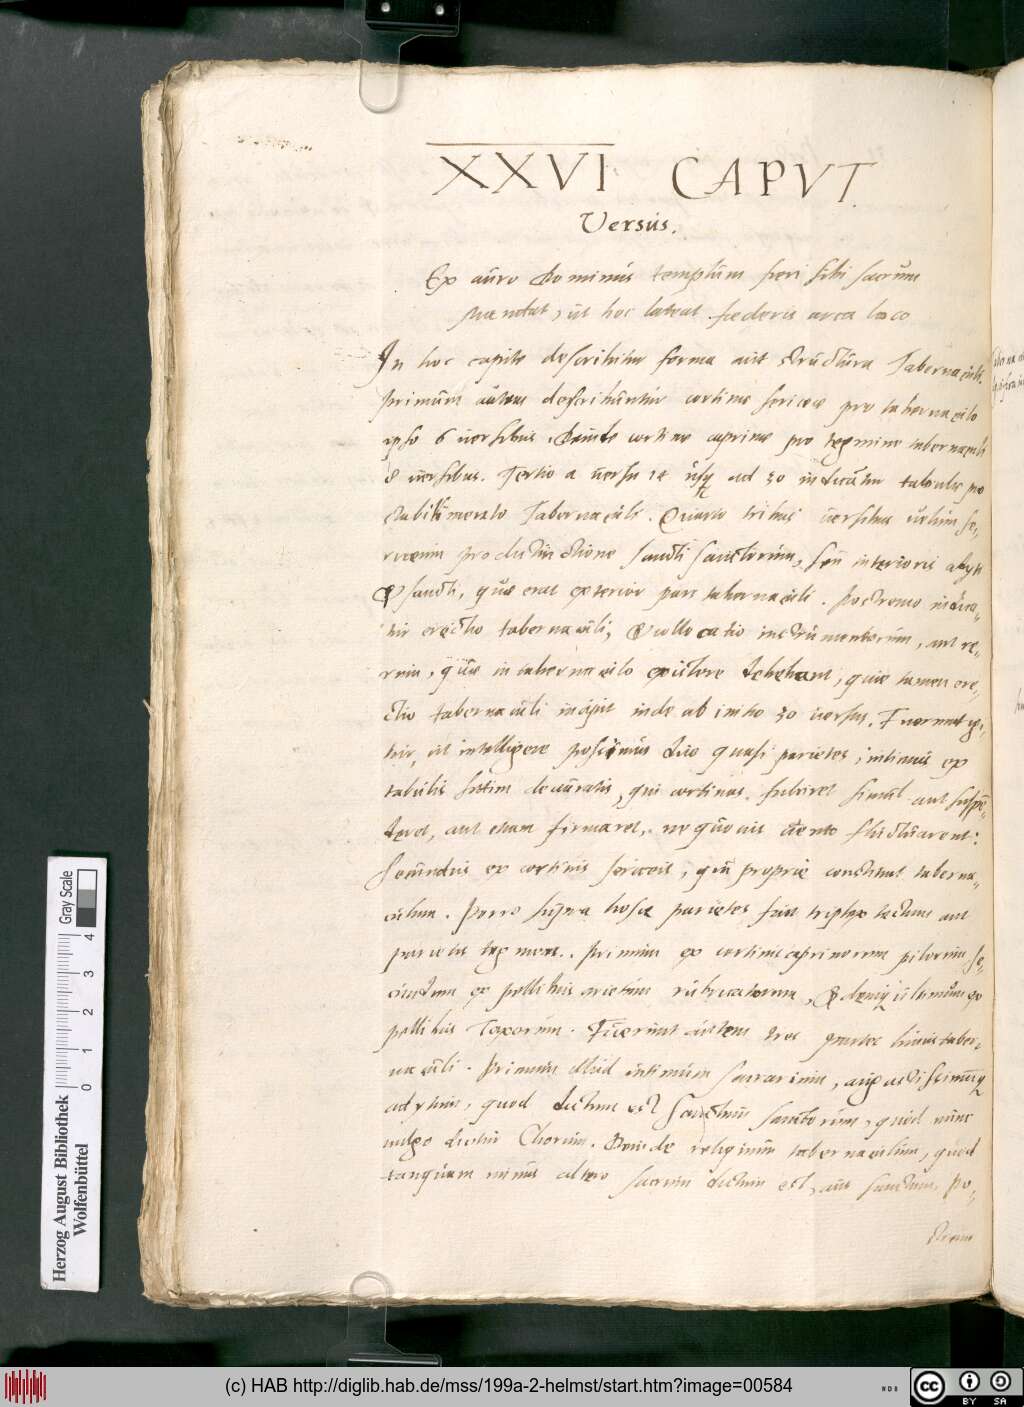 XXVI CAPVT
Versus.
Ex auro Dominus templum fieri sibi sacrum
mandat, ut hoc lateat foederis arca loco
In hoc capite describitur forma aut structura Tabernaculi
primum autem describuntur cortinae sericeae pro tabernaculo
ipso 6 versibus. Deinde cortinae caprinae pro tegmine tabernaculi
8 versibus. Tertio a versu 14 usq ad 30 indicantur tabulae pro
stabilimento Tabernaculi. Quarto tribus versibus velum se=
riceum pro distinctione sancti sanctorum, seu interioris adyti
& sancti, quae erat exterior pars tabernaculi. Postremo indica=
tur erectio tabernaculi, & collocatio instrumentorum, aut re=
rum, quae in tabernaculo existere debebant, quae tamen ere=
ctio tabernaculi incipit inde ab initio 30 versus. Fuerunt igi=
tur, ut intelligere possimus duo quasi parietes, intimus ex
tabulis deauratis, qui cortinas simul aut suspe=
deret, aut etiam firmaret, ne quovis vento fluctuarent:
Secundus ex cortinis sericeis, quae proprie constituit taberna=
culum. Porro supra hosce parietes fuit triplex tectum aut
parietis tegmen. Primum ex cortinis caprinorum pilorum se=
cundum ex pellibus arietum rubricatorum, & deniq ultimum ex
pellibus Taxorum. Fuerunt autem tres partes huius taber=
naculi. Primum illud intimum sacrarium, augustissimumq
adytum, quod dictum est Sanctum sanctorum, quod nunc
vulgo dicitur Chorum. Deinde reliquum tabernaculum, quod
tanquam minus altero sacrum dictum est, aut sanctum, po=
strem
Herzog August Bibliothek
Wolfenbüttel
Gray Scale
0 1 2 3 4
(c) HAB http://diglib.hab.de/mss/199a-2-helmst/start.htm?image=00584
cc BY SA